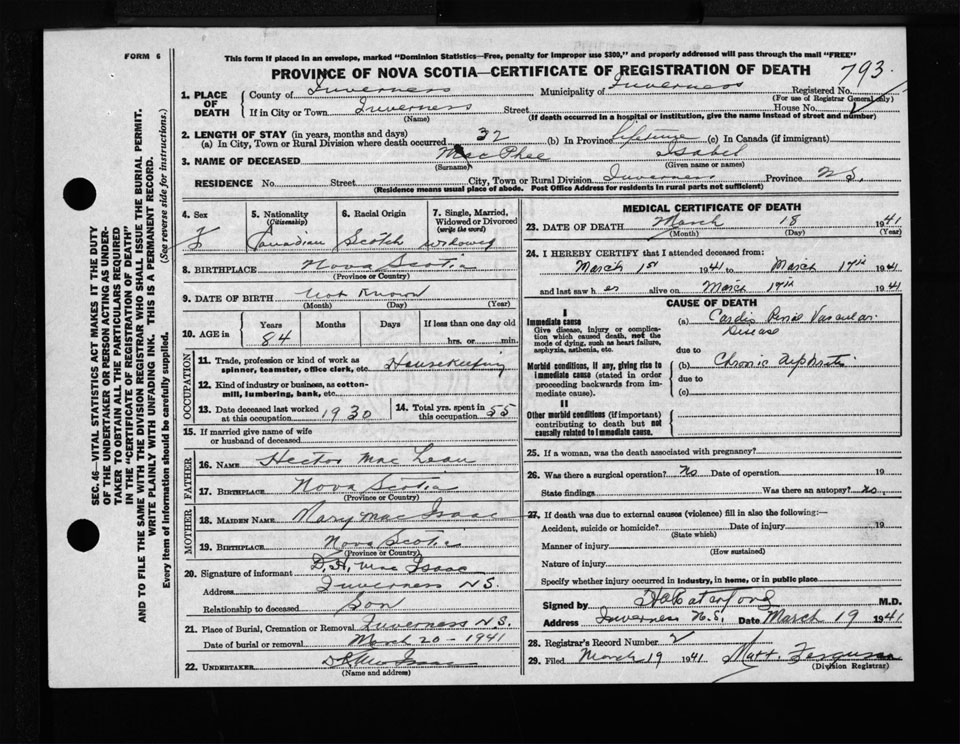 FORM 6
This form if placed in an envelope, marked "Dominion Statistics—Free, penalty for improper use $300," and properly addressed will pass through the mail "FREE"
PROVINCE OF NOVA SCOTIA—CERTIFICATE OF REGISTRATION OF DEATH
793
1. PLACE OF DEATH
County of Inverness Municipality of Inverness Registered No.
(For use of Registrar General only)
If in City or Town Inverness Street House No.
(Name) (If death occurred in a hospital or institution, give the name instead of street and number)
2. LENGTH OF STAY (in years, months and days)
(a) In City, Town or Rural Division where death occurred 32 (b) In Province Lifetime (c) In Canada (if immigrant)
3. NAME OF DECEASED MacPhee Isabel
(Surname) (Given name or names)
RESIDENCE No. Street City, Town or Rural Division Inverness Province N S.
(Residence means usual place of abode. Post Office Address for residents in rural parts not sufficient)
SEC. 46—VITAL STATISTICS ACT MAKES IT THE DUTY
OF THE UNDERTAKER OR PERSON ACTING AS UNDER-
TAKER TO OBTAIN ALL THE PARTICULARS REQUIRED
IN THE "CERTIFICATE OF REGISTRATION OF DEATH"
AND TO FILE THE SAME WITH THE DIVISION REGISTRAR WHO SHALL ISSUE THE BURIAL PERMIT.
WRITE PLAINLY WITH UNFADING INK. THIS IS A PERMANENT RECORD.
Every item of information should be carefully supplied. (See reverse side for instructions.)
4. Sex
F
5. Nationality
(Citizenship)
Canadian
6. Racial Origin
Scotch
7. Single, Married,
Widowed or Divorced
(write the word)
Widowed
8. BIRTHPLACE Nova Scotia
(Province or Country)
9. DATE OF BIRTH Not Known
(Month) (Day) (Year)
10. AGE in
Years Months Days If less than one day old
84 hrs. or min.
OCCUPATION
11. Trade, profession or kind of work as
spinner, teamster, office clerk, etc. Housekeeping
12. Kind of industry or business, as cotton-
mill, lumbering, bank, etc.
13. Date deceased last worked
at this occupation 1930
14. Total yrs. spent in
this occupation 55
15. If married give name of wife
or husband of deceased
FATHER
16. NAME Hector Mac Lean
17. BIRTHPLACE Nova Scotia
(Province or Country)
MOTHER
18. MAIDEN NAME Mary Mac Isaac
19. BIRTHPLACE Nova Scotia
(Province or Country)
20. Signature of informant D. H. Mac Isaac
Address Inverness N S.
Relationship to deceased Son
21. Place of Burial, Cremation or Removal Inverness N.S.
Date of burial or removal March 20 - 1941
22. UNDERTAKER Mac Isaac
(Name and address)
MEDICAL CERTIFICATE OF DEATH
23. DATE OF DEATH March 18 1941
(Month) (Day) (Year)
24. I HEREBY CERTIFY that I attended deceased from:
March 1st 1941 to March 17th 1941
and last saw her alive on March 17th 1941
CAUSE OF DEATH
I
Immediate cause
Give disease, injury or complica-
tion which caused death, not the
mode of dying, such as heart failure,
asphyxia, asthenia, etc.
(a) Cardio Renal Vascular
Disease
due to
Morbid conditions, if any, giving rise to
immediate cause (stated in order
proceeding backwards from im-
mediate cause).
(b) Chronic nephritis
due to
(c)
II
Other morbid conditions (if important)
contributing to death but not
causally related to immediate cause.
25. If a woman, was the death associated with pregnancy?
26. Was there a surgical operation? No Date of operation 19
State findings Was there an autopsy? No.
27. If death was due to external causes (violence) fill in also the following:—
Accident, suicide or homicide? Date of injury 19
(State which)
Manner of injury
(How sustained)
Nature of injury
Specify whether injury occurred in industry, in home, or in public place
Signed by M.D.
Address Inverness N.S. Date March 19 1941
28. Registrar's Record Number 2
29. Filed March 19 1941 Matt. Ferguson
(Division Registrar)